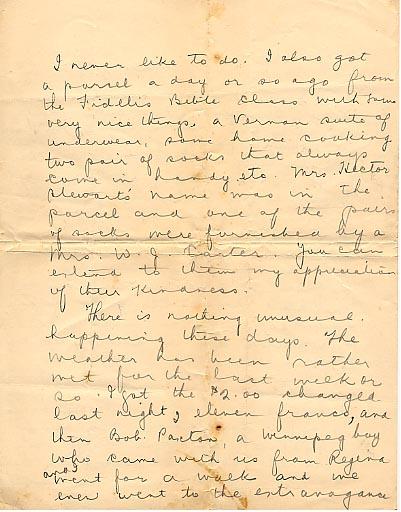 I never like to do. I also got
a parcel a day or so ago from
the Fidelis Bible Class with some
very nice things, a Vernan suite of
underwear, some home cooking
two pair of socks that always
come in handy etc. Mrs. Hector
Stewart's name was in the
parcel and one of the pairs
of socks were furnished by a
Mrs. W. J. Carter. You can
extend to them my appreciation
of their kindness.
There is nothing unusual
happening these days. The
weather has been rather
wet for the last week or
so. I got the $2.00 changed
last night, eleven francs, and
then Bob. Paxton, a winnipeg boy
who came with us from Regina
went for a walk and we
even went to the extravagance